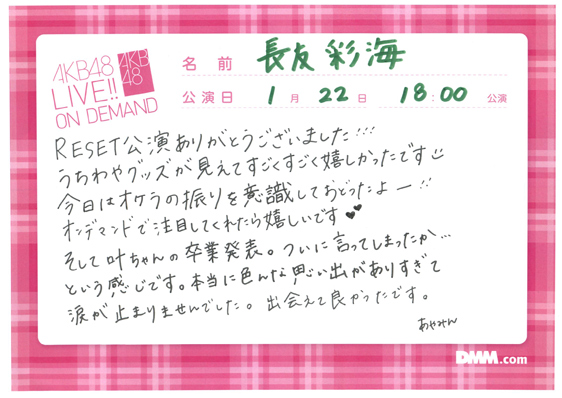 AKB48
LIVE!!
ON DEMAND
AKB
48
名前 長友彩海
公演日 1月22日 18:00 公演
RESET公演ありがとうございました!!!
うちわやグッズが見えてすごくすごく嬉しかったです
今日はオケラの振りを意識しておどったよー!!
オンデマンドで注目してくれたら嬉しいです
そして叶ちゃんの卒業発表。ついに言ってしまったか…
という感じです。本当に色んな思い出がありすぎて
涙が止まりませんでした。出会えて良かったです。
あやみん
DMM.com